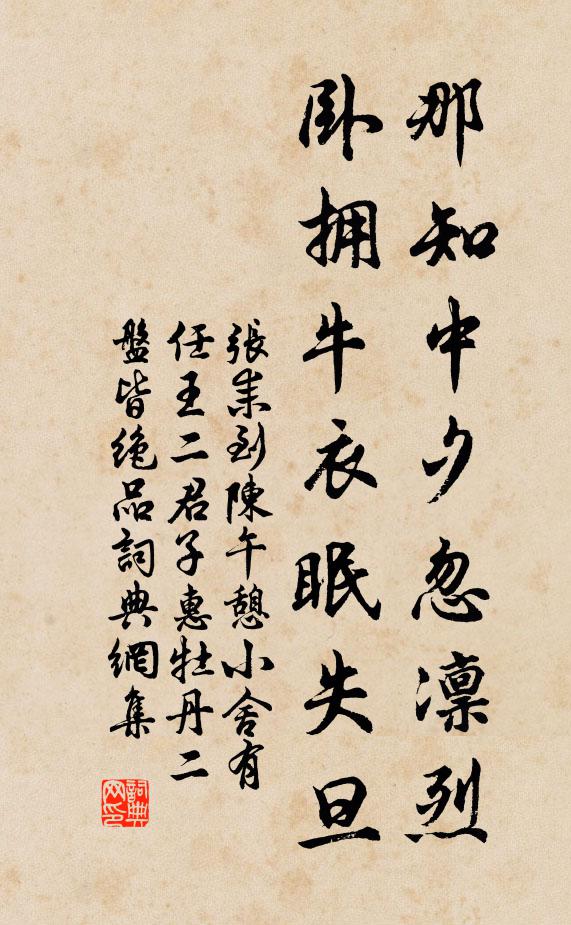 那知中夕忽凛烈
卧拥牛衣眠失旦
張耒到陳午憩小舍有
任王二君子惠牡丹二
盤皆絶品詞典網集
詞典网印